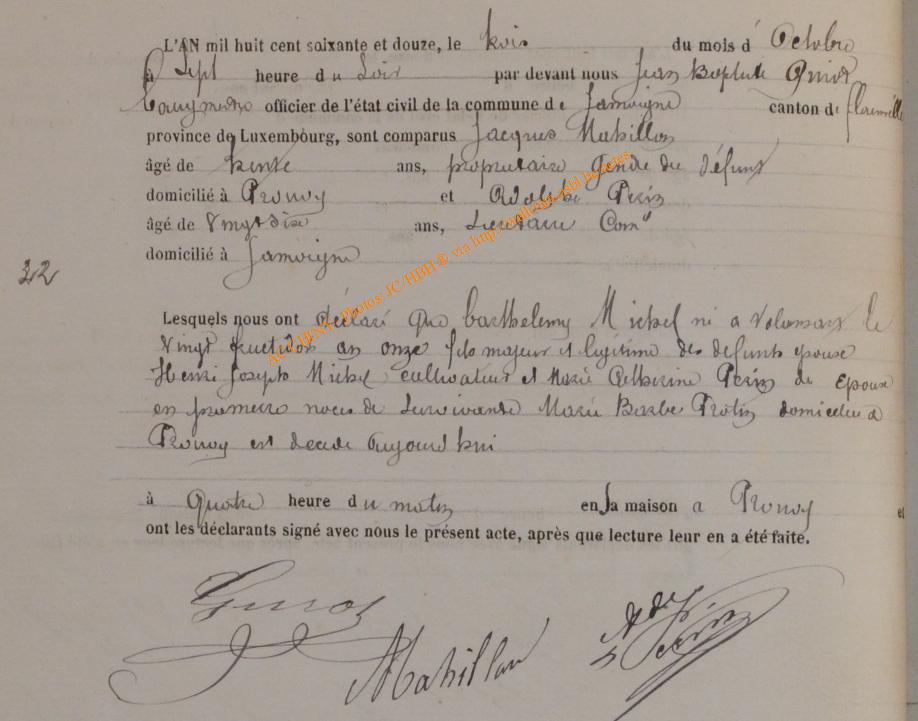 L'AN mil huit cent soixante et douze, le trois du mois d' Octobre
à Sept heure du Soir par devant nous Jean Baptiste
Bourgmestre officier de l'état civil de la commune de Jamoigne canton de florenville
province de Luxembourg, sont comparus Jacques Mahillon
âgé de trente ans, proprietaire Gendre du défunt
domicilié à Pronoy et Adolphe Perin
âgé de Vingt dix ans, Secretaire Com^l
domicilié à Jamoigne
32
Lesquels nous ont déclaré que barthelemy Michel né a Volomont le
vingt fructidor an onze fils majeur et legitime des defunts epoux
Henri Joseph Michel cultivateur et Marie Catherine Perin de Epoux
en premiere noces de Survivante Marie Barbe Protin domicilié a
Pronoy est decede aujourd hui
à quatre heure du matin en sa maison a Pronoy et
ont les déclarants signé avec nous le présent acte, après que lecture leur en a été faite.
Mahillon
Ad Perin
ACTHENA - Photos: JC HBH © via